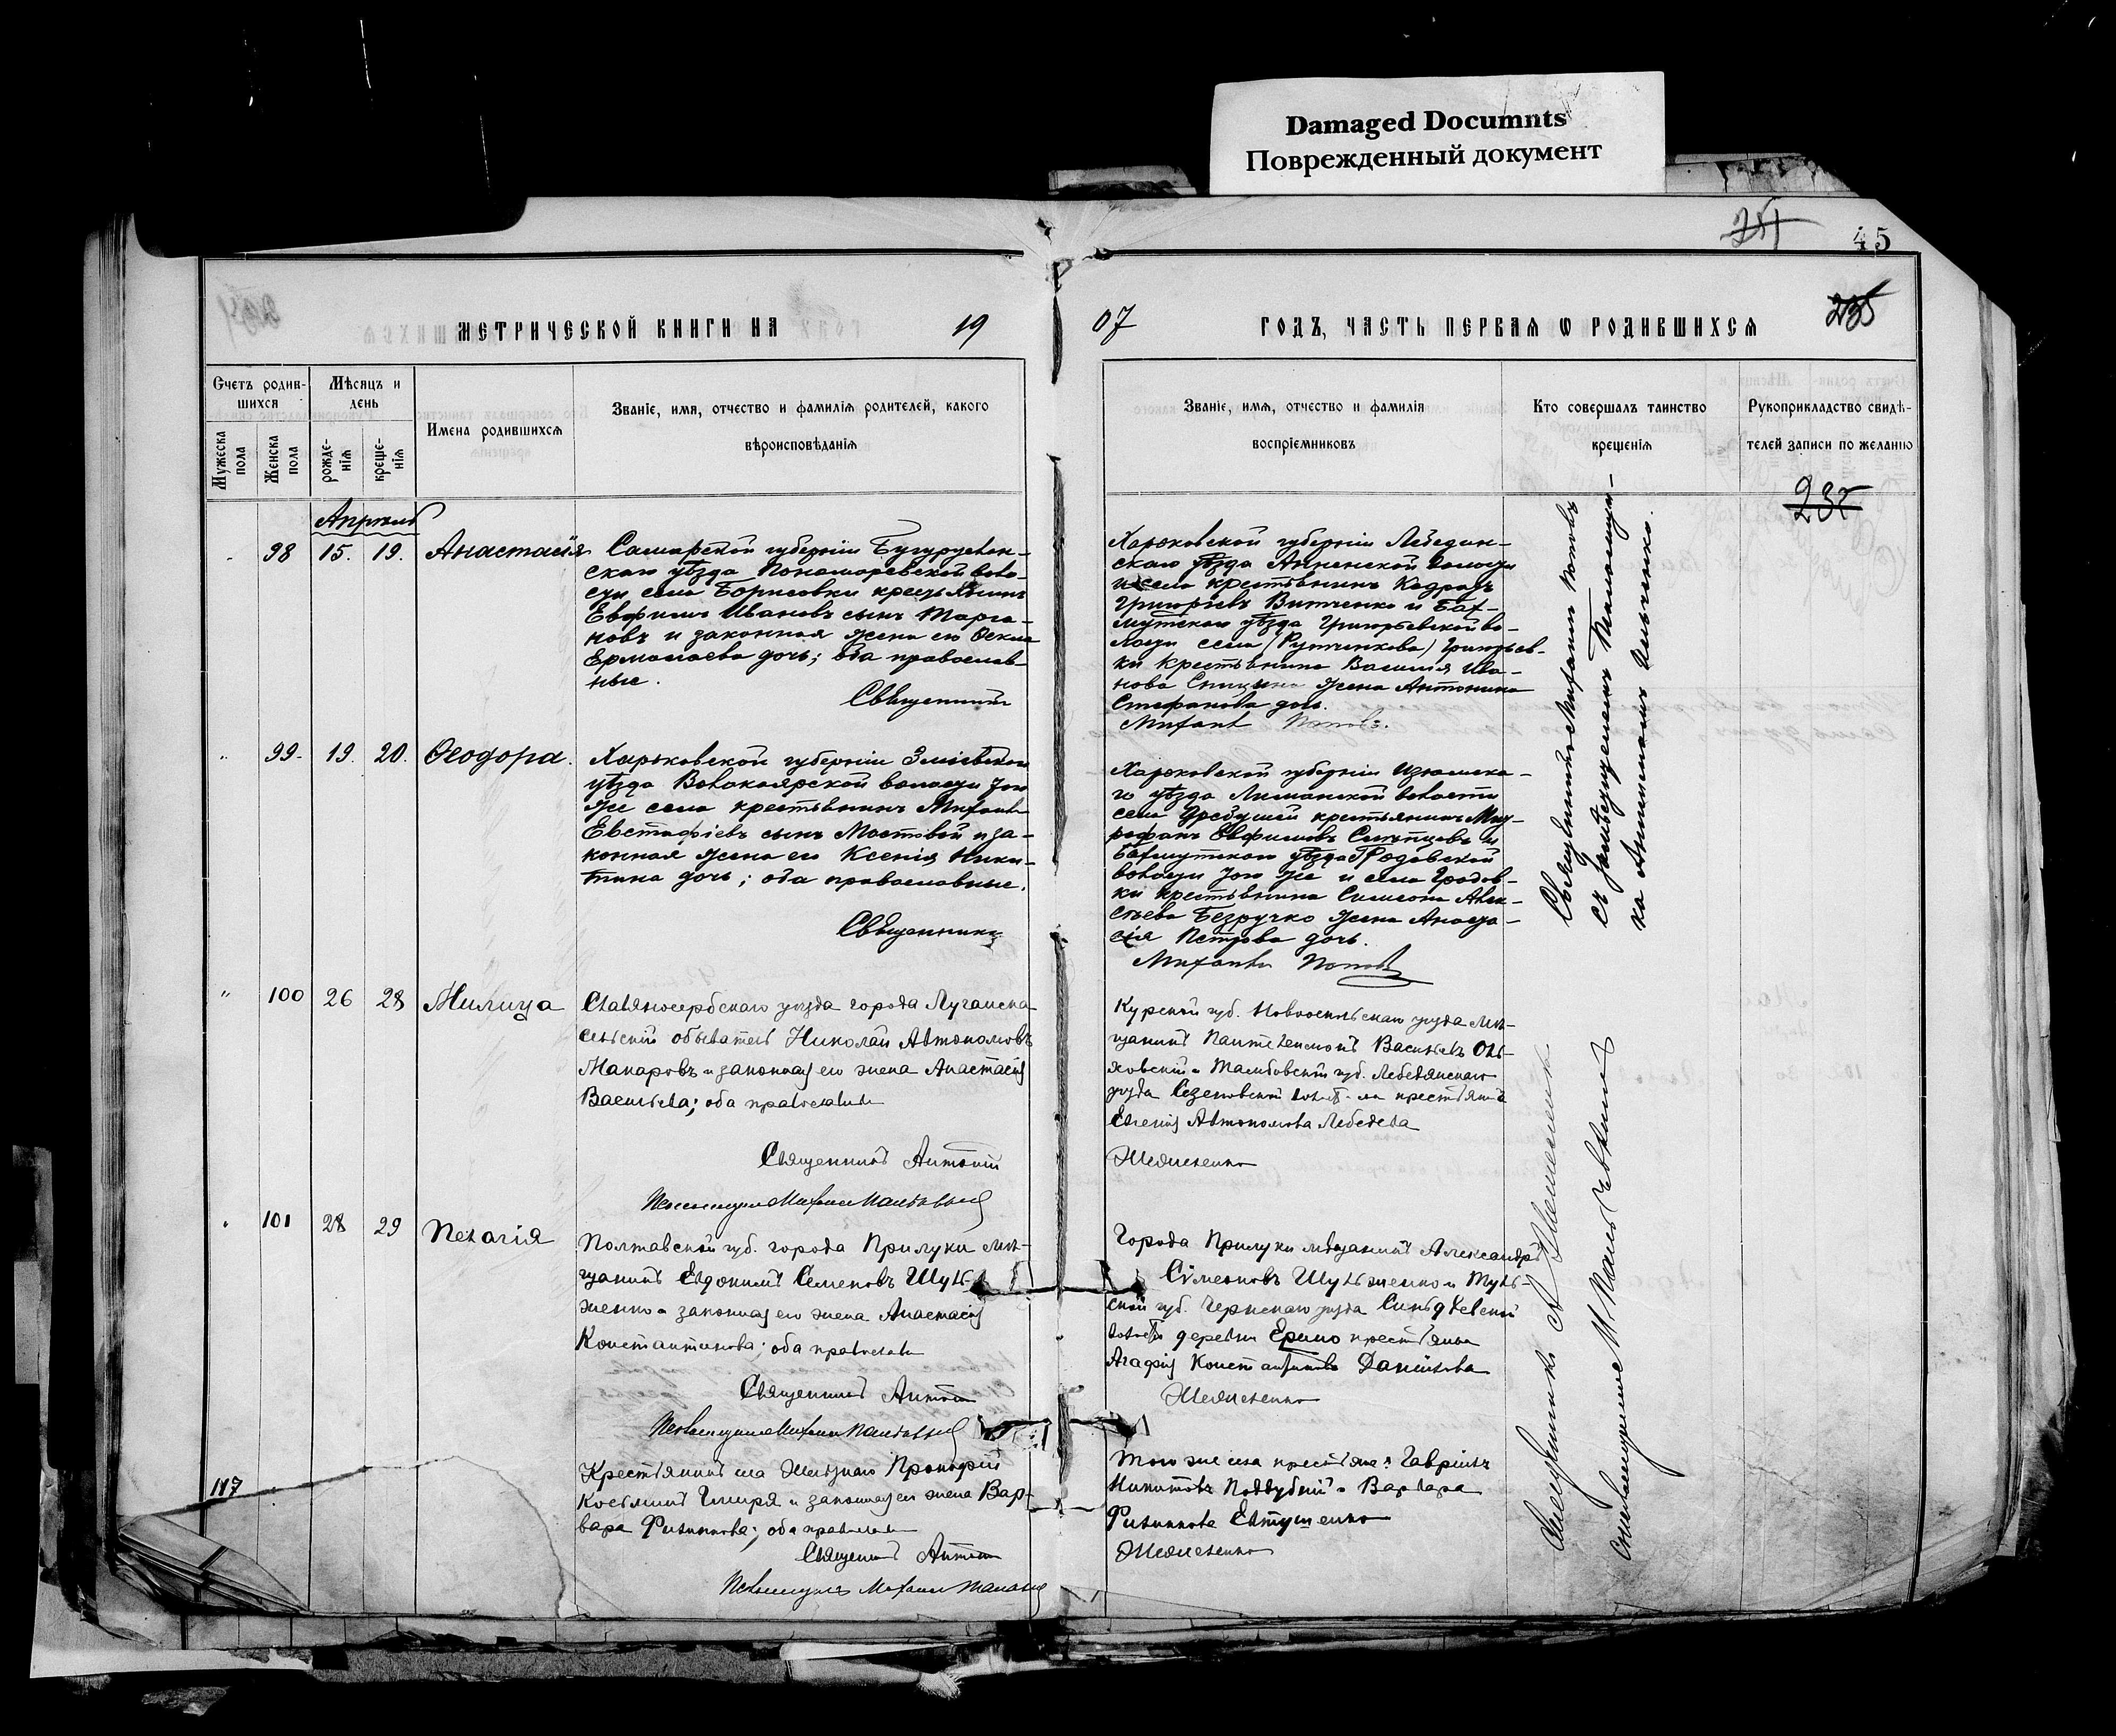 Damaged Documnts
Поврежденный документ
45
МЕТРИЧЕСКОЙ КНИГИ НА 19
07 ГОДЪ, ЧАСТЬ ПЕРВАЯ Ѡ РОДИВШИХСЯ
235
Счетъ родив-
шихся
Мужеска пола
Женска пола
Мѣсяцъ и
день
рожде-
нія
креще-
нія
Имена родившихся
Званіе, имя, отчество и фамилія родителей, какого
вѣроисповѣданія
Званіе, имя, отчество и фамилія
воспріемниковъ
Кто совершалъ таинство
крещенія
Рукоприкладство свидѣ-
телей записи по желанію
232
Апрѣль
98 15. 19. Анастасія
Самарской губерніи Бугуруслан-
скаго уѣзда Пономаревской воло-
сти села Борисовки крестьянинъ
Евфимъ Ивановъ сынъ
и законная жена его Ѳекла
Ермолаева дочь; оба православ-
ные.
Священникъ
Харьковской губерніи Лебедин-
скаго уѣзда Анненской волости
и села крестьянинъ Кодратъ
Григорьевъ Витченко и Бах-
мутскаго уѣзда Григорьевской во-
лости села (Рутченкова) Григорьев-
ки крестьянина Василія Ива-
нова Спицына жена Антонина
Стефанова дочь.
Михаилъ Поповъ.
99 19. 20. Ѳеодора.
Харьковской губерніи Зміевского
уѣзда Волохоярской волости той
же села крестьянинъ Михаилъ
Евстафіевъ сынъ Мостовой и за-
конная жена его Ксенія Ники-
тина дочь; оба православные.
Священникъ
Харьковской губерніи Изюмска-
го уѣзда Лиманской волости
села крестьянинъ Мит-
рофанъ Евфимовъ Слѣпцовъ и
Бахмутскаго уѣзда Гродовской
волости той же и села Гродов-
ки крестьянина Симеона Алек-
сѣева Безручко жена Анаста-
сія Петрова дочь.
Михаилъ Поповъ
Священникъ Михаилъ Поповъ
съ псаломщи-
ка
100 26 28 Милица
Славяносербскаго уѣзда города Луганска
сельскій обыватель Николай Автономовъ
Макаровъ и законная его жена Анастасія
Васильева; оба православн
Священникъ Антоній
Курской губ. Новооскольскаго уѣзда мѣ-
щанинъ Пантелеимонъ Васильевъ Оль-
ховскій и Тамбовской губ. Лебедянскаго
уѣзда Сезеновской волости крестьянка
Евгенія Автономова Лебедева
101 28 29 Пелагія
Полтавской губ. города Прилуки мѣ-
щанинъ Евдокимъ Семеновъ Шуль-
женко и законная его жена Анастасія
Константинова; оба православн
Священникъ Антоній
Города Прилуки мѣщанинъ Александръ
Сімеоновъ Шульженко и Туль-
ской губ. Чернскаго уѣзда
волости деревни Ерино крестьянка
Агафія Константинова Данилова
117
Крестьянинъ села Желѣзнаго Прокофій
Косьминъ Гмиря и законная его жена Вар-
вара Филиппова; оба православн
Священникъ Антоній
Того же села крестьяне: Гавріилъ
Никитовъ Поддубній и Варвара
Филиппова Евтушенко